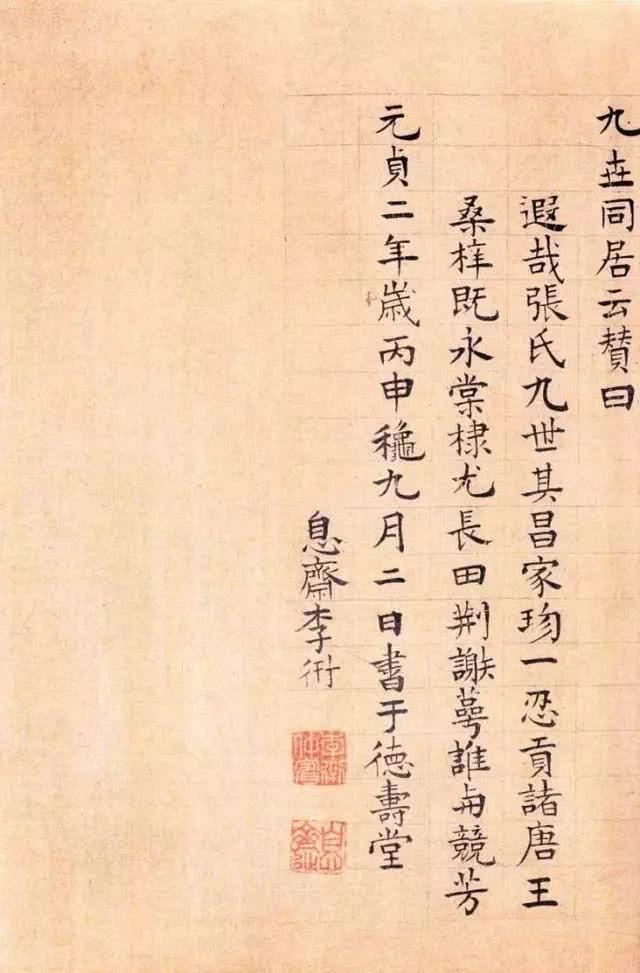 九世同居云贊曰
遐哉張氏九世其昌家珎一忍貢諸唐王
桑梓既永棠棣尤長田荆謝萼誰與競芳
元貞二年歲丙申龝九月二日書于德壽堂
息齋李衎
李衎
仲賓
息齋